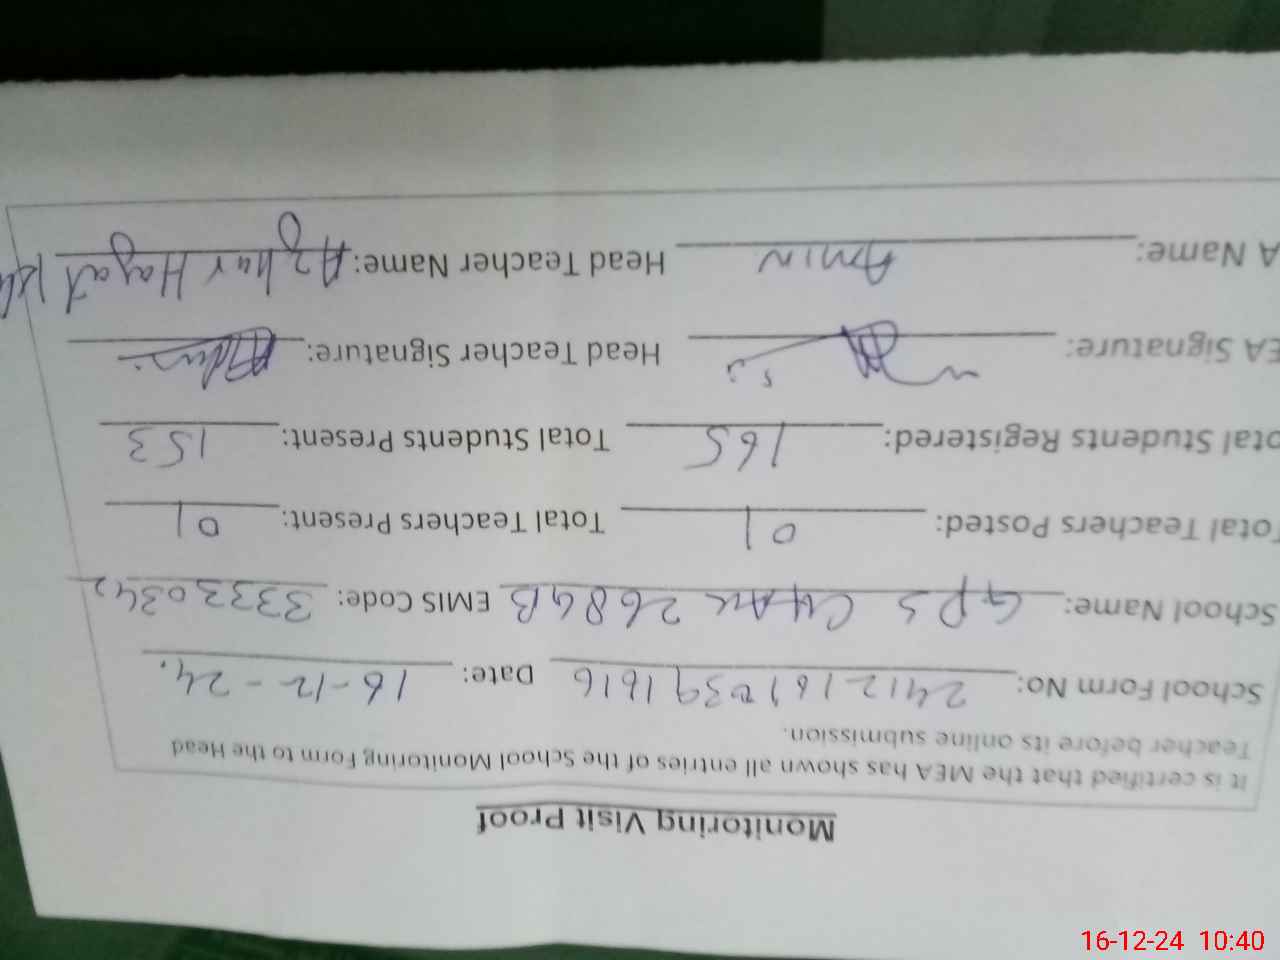 Monitoring Visit Proof
It is certified that the MEA has shown all entries of the School Monitoring Form to the Head
Teacher before its online submission.
School Form No: 24121610391616 Date: 16-12-24.
School Name: GPS CHAK 268 GB EMIS Code: 33330342
Total Teachers Posted: 01 Total Teachers Present: 01
otal Students Registered: 165 Total Students Present: 153
EA Signature: Head Teacher Signature:
A Name: AMIN Head Teacher Name: Azhar Hayat
16-12-24 10:40